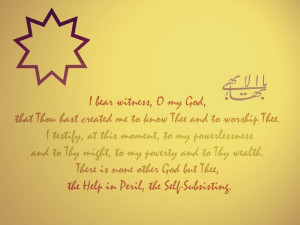 يا بهاء الابهى
I bear witness, O my God,
that Thou hast created me to know Thee and to worship Thee.
I testify, at this moment, to my powerlessness
and to Thy might, to my poverty and to Thy wealth.
There is none other God but Thee,
the Help in Peril, the Self-Subsisting.